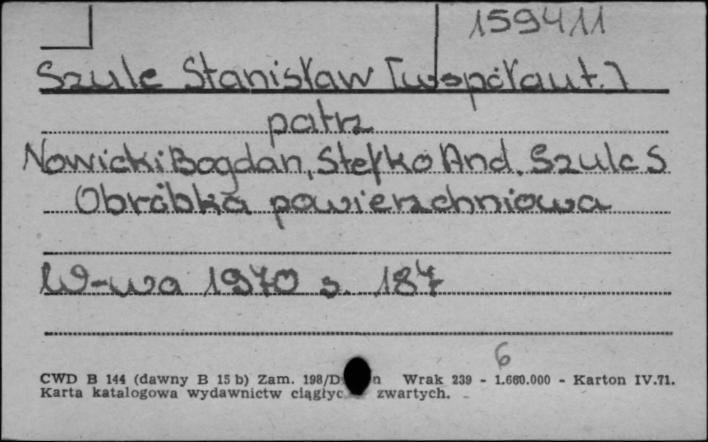 159411
Szulc Stanisław [współaut.]
patrz
Nowicki Bogdan, Stefko And. Szulc S
Obróbka powierzchniowa
W-wa 1970 s. 187
6
CWD B 144 (dawny B 15 b) Zam. 198/D n Wrak 239 - 1.660.000 - Karton IV.71.
Karta katalogowa wydawnictw ciągłyc zwartych.